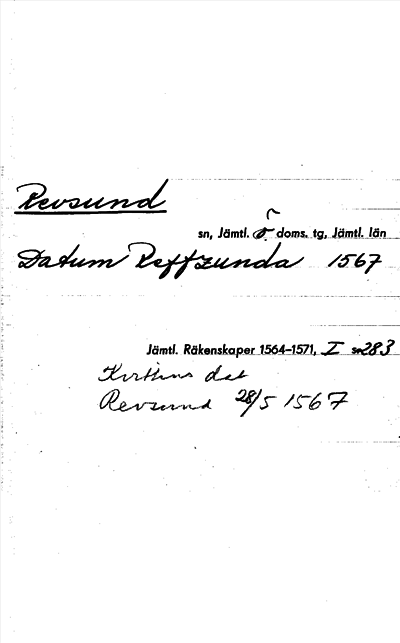 Revsund
sn, Jämtl. ö. doms. tg, Jämtl. län
Datum Reffzunda 1567
Jämtl. Räkenskaper 1564–1571, I s 283
dat
Revsund 28/5 1567